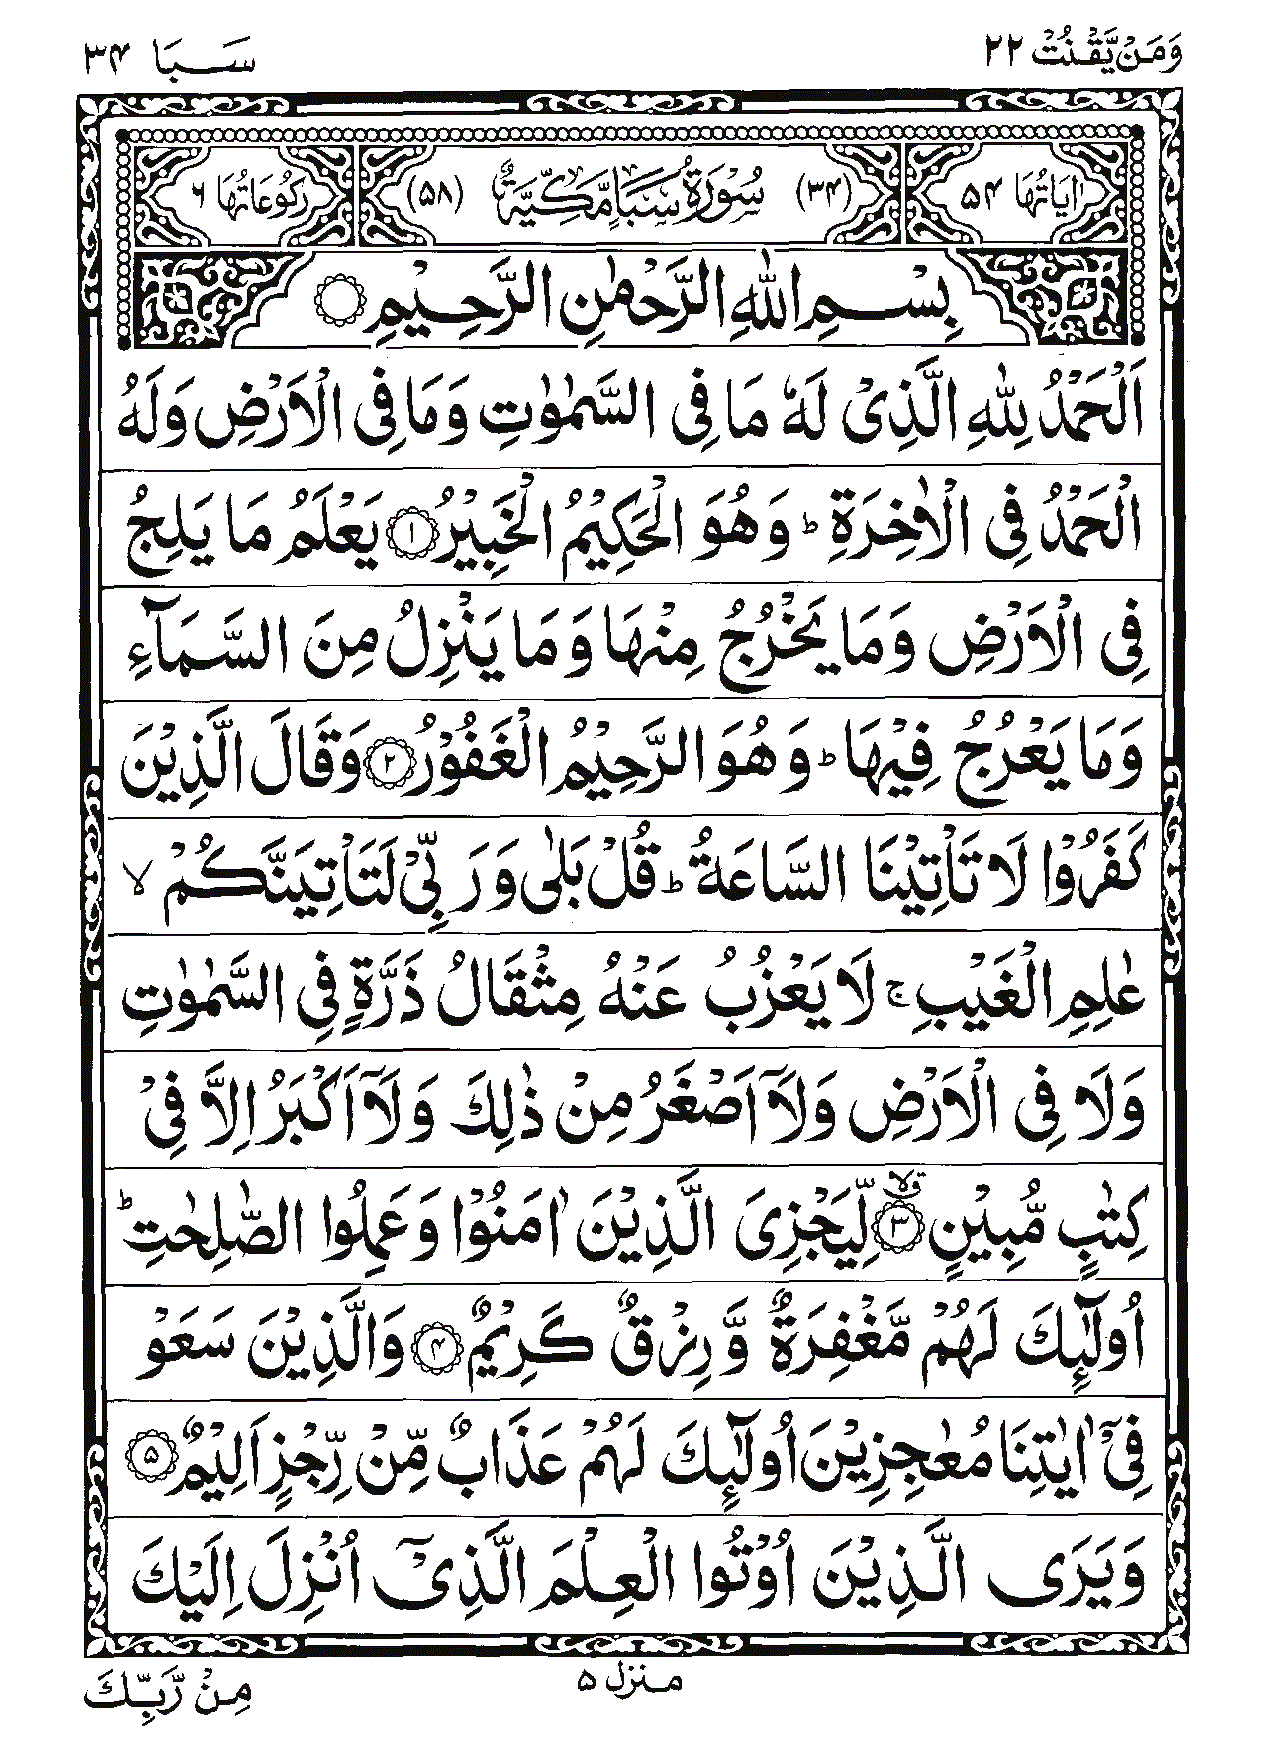 وَمَنْ يَّقْنُتْ ٢٢
سَبَا ٣۴
اٰيَاتُهَا ۵۴
(٣۴) سُوْرَةُ سَبَاٍ مَّكِّيَّةٌ (۵۸)
رُكُوْعَاتُهَا ۶
بِسْمِ اللهِ الرَّحْمٰنِ الرَّحِيْمِ
اَلْحَمْدُ لِلّٰهِ الَّذِىْ لَهٗ مَا فِى السَّمٰوٰتِ وَمَا فِى الْاَرْضِ وَلَهُ
الْحَمْدُ فِى الْاٰخِرَةِ ؕ وَهُوَ الْحَكِيْمُ الْخَبِيْرُ ﴿۱﴾ يَعْلَمُ مَا يَلِجُ
فِى الْاَرْضِ وَمَا يَخْرُجُ مِنْهَا وَمَا يَنْزِلُ مِنَ السَّمَآءِ
وَمَا يَعْرُجُ فِيْهَا ؕ وَهُوَ الرَّحِيْمُ الْغَفُوْرُ ﴿۲﴾ وَقَالَ الَّذِيْنَ
كَفَرُوْا لَا تَاْتِيْنَا السَّاعَةُ ؕ قُلْ بَلٰى وَرَبِّىْ لَتَاْتِيَنَّكُمْ ۙ
عٰلِمِ الْغَيْبِ ۚ لَا يَعْزُبُ عَنْهُ مِثْقَالُ ذَرَّةٍ فِى السَّمٰوٰتِ
وَلَا فِى الْاَرْضِ وَلَآ اَصْغَرُ مِنْ ذٰلِكَ وَلَآ اَكْبَرُ اِلَّا فِىْ
كِتٰبٍ مُّبِيْنٍ ﴿۳﴾ۙق لِّيَجْزِىَ الَّذِيْنَ اٰمَنُوْا وَعَمِلُوا الصّٰلِحٰتِ ؕ
اُولٰٓئِكَ لَهُمْ مَّغْفِرَةٌ وَّرِزْقٌ كَرِيْمٌ ﴿۴﴾ وَالَّذِيْنَ سَعَوْ
فِىْٓ اٰيٰتِنَا مُعٰجِزِيْنَ اُولٰٓئِكَ لَهُمْ عَذَابٌ مِّنْ رِّجْزٍ اَلِيْمٌ ﴿۵﴾
وَيَرَى الَّذِيْنَ اُوْتُوا الْعِلْمَ الَّذِىْٓ اُنْزِلَ اِلَيْكَ
منزل ۵
مِنْ رَّبِّكَ